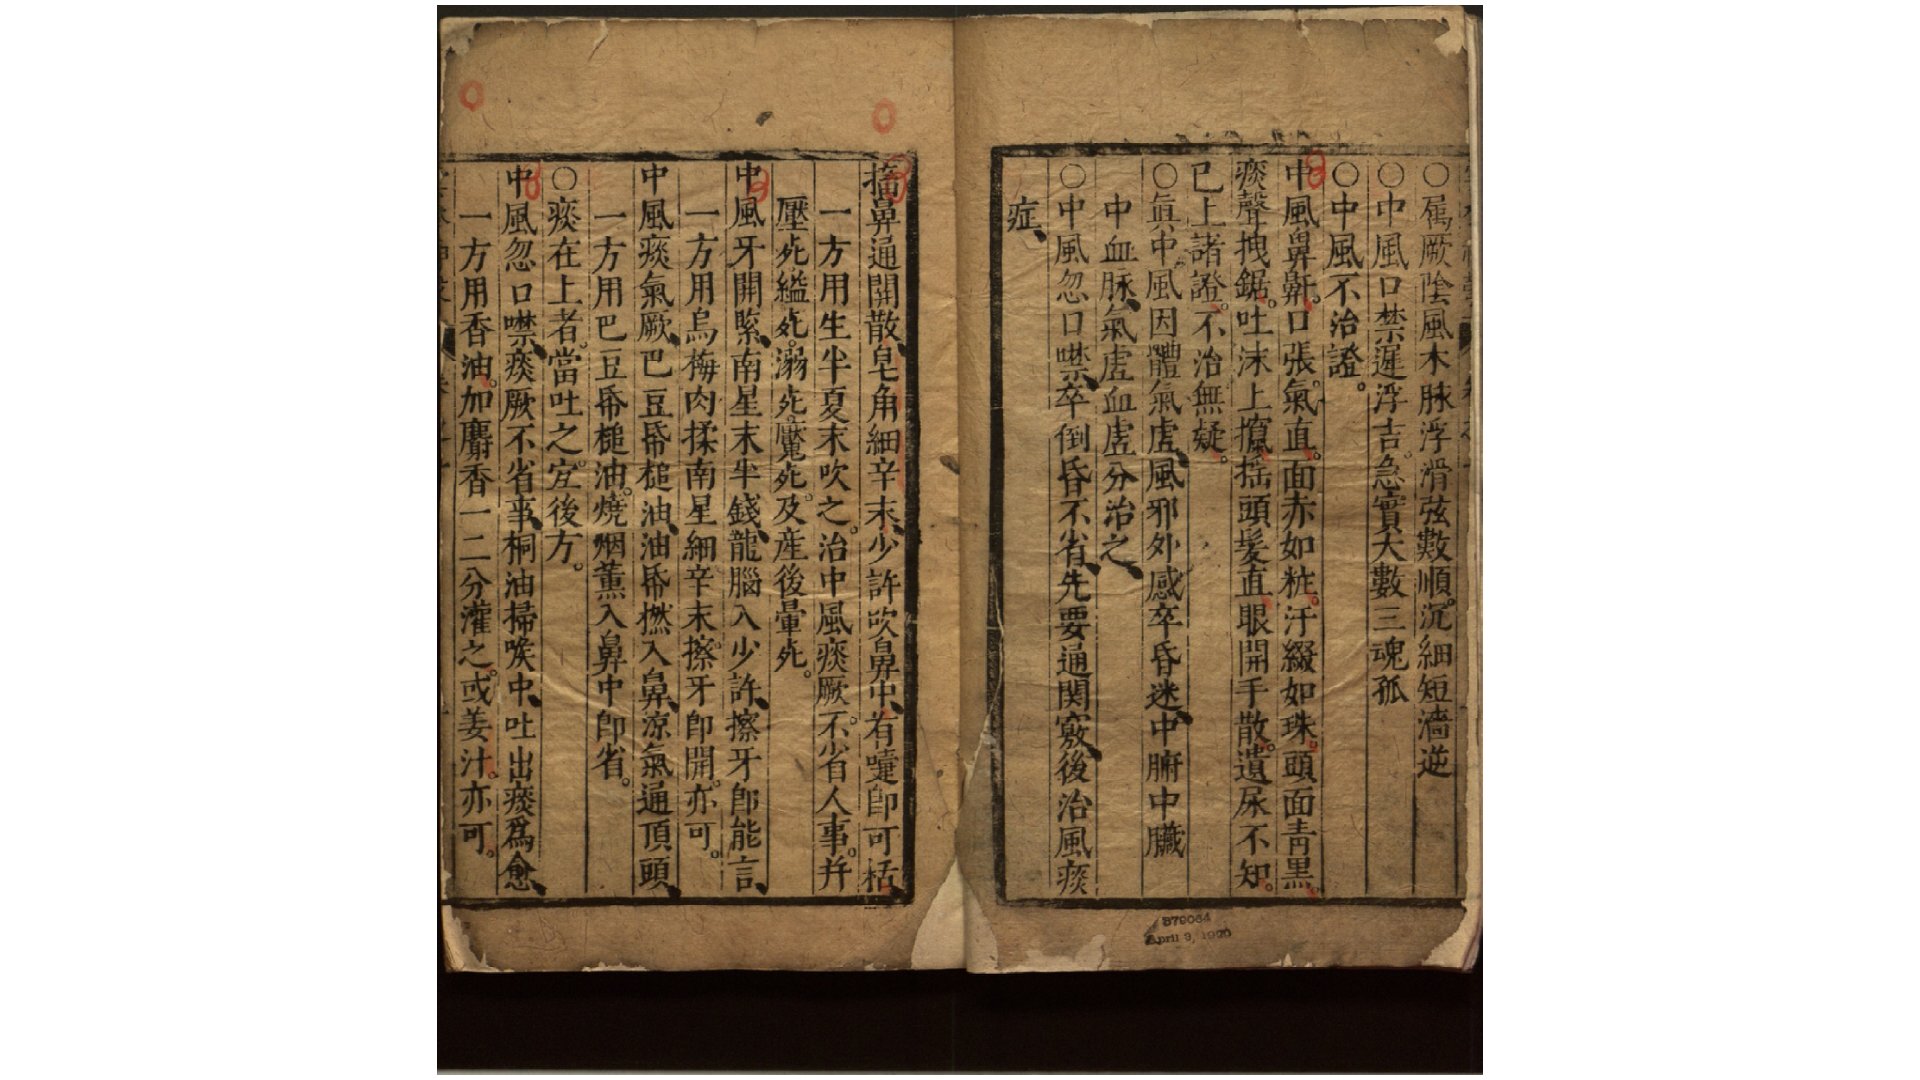 ○厲厥陰風木脉浮滑弦數順沉細短濇逆
○中風口禁遲浮吉急實大數三魂孤
○中風不治證。
中風鼻鼾。口張氣直。面赤如粧。汗綴如珠。頭面青黒。
痰聲拽鋸。吐沫上攛。揺頭髮直。眼開手散。遺尿不知。
已上諸證。不治無疑。
○眞中風因體氣虛、風邪外感卒昏迷、中腑中臓
中血脉、氣虛血虛分治之、
○中風忽口噤、卒倒昏不省、先要通関竅、後治風痰
症、
搐鼻通開散、皂角細辛末、少許吹鼻中、有嚏卽可栝、
一方用生半夏末吹之。治中風痰厥。不省人事。并
壓死縊死。溺死。魘死。及産後暈死。
中風牙開緊、南星末半錢、龍腦入少許、擦牙卽能言、
一方用烏梅肉揉南星細辛末。擦牙卽開。亦可。
中風痰氣厥、巴豆帋槌油、油帋撚入鼻、凉氣通頂頭、
一方用巴豆帋槌油。燒烟薫入鼻中卽省。
○痰在上者。當吐之。宜後方。
中風忽口噤、痰厥不省事、桐油掃喉中、吐出痰爲愈、
一方用香油。加麝香一二分灌之。或姜汁。亦可。
B79064
April 3, 1920